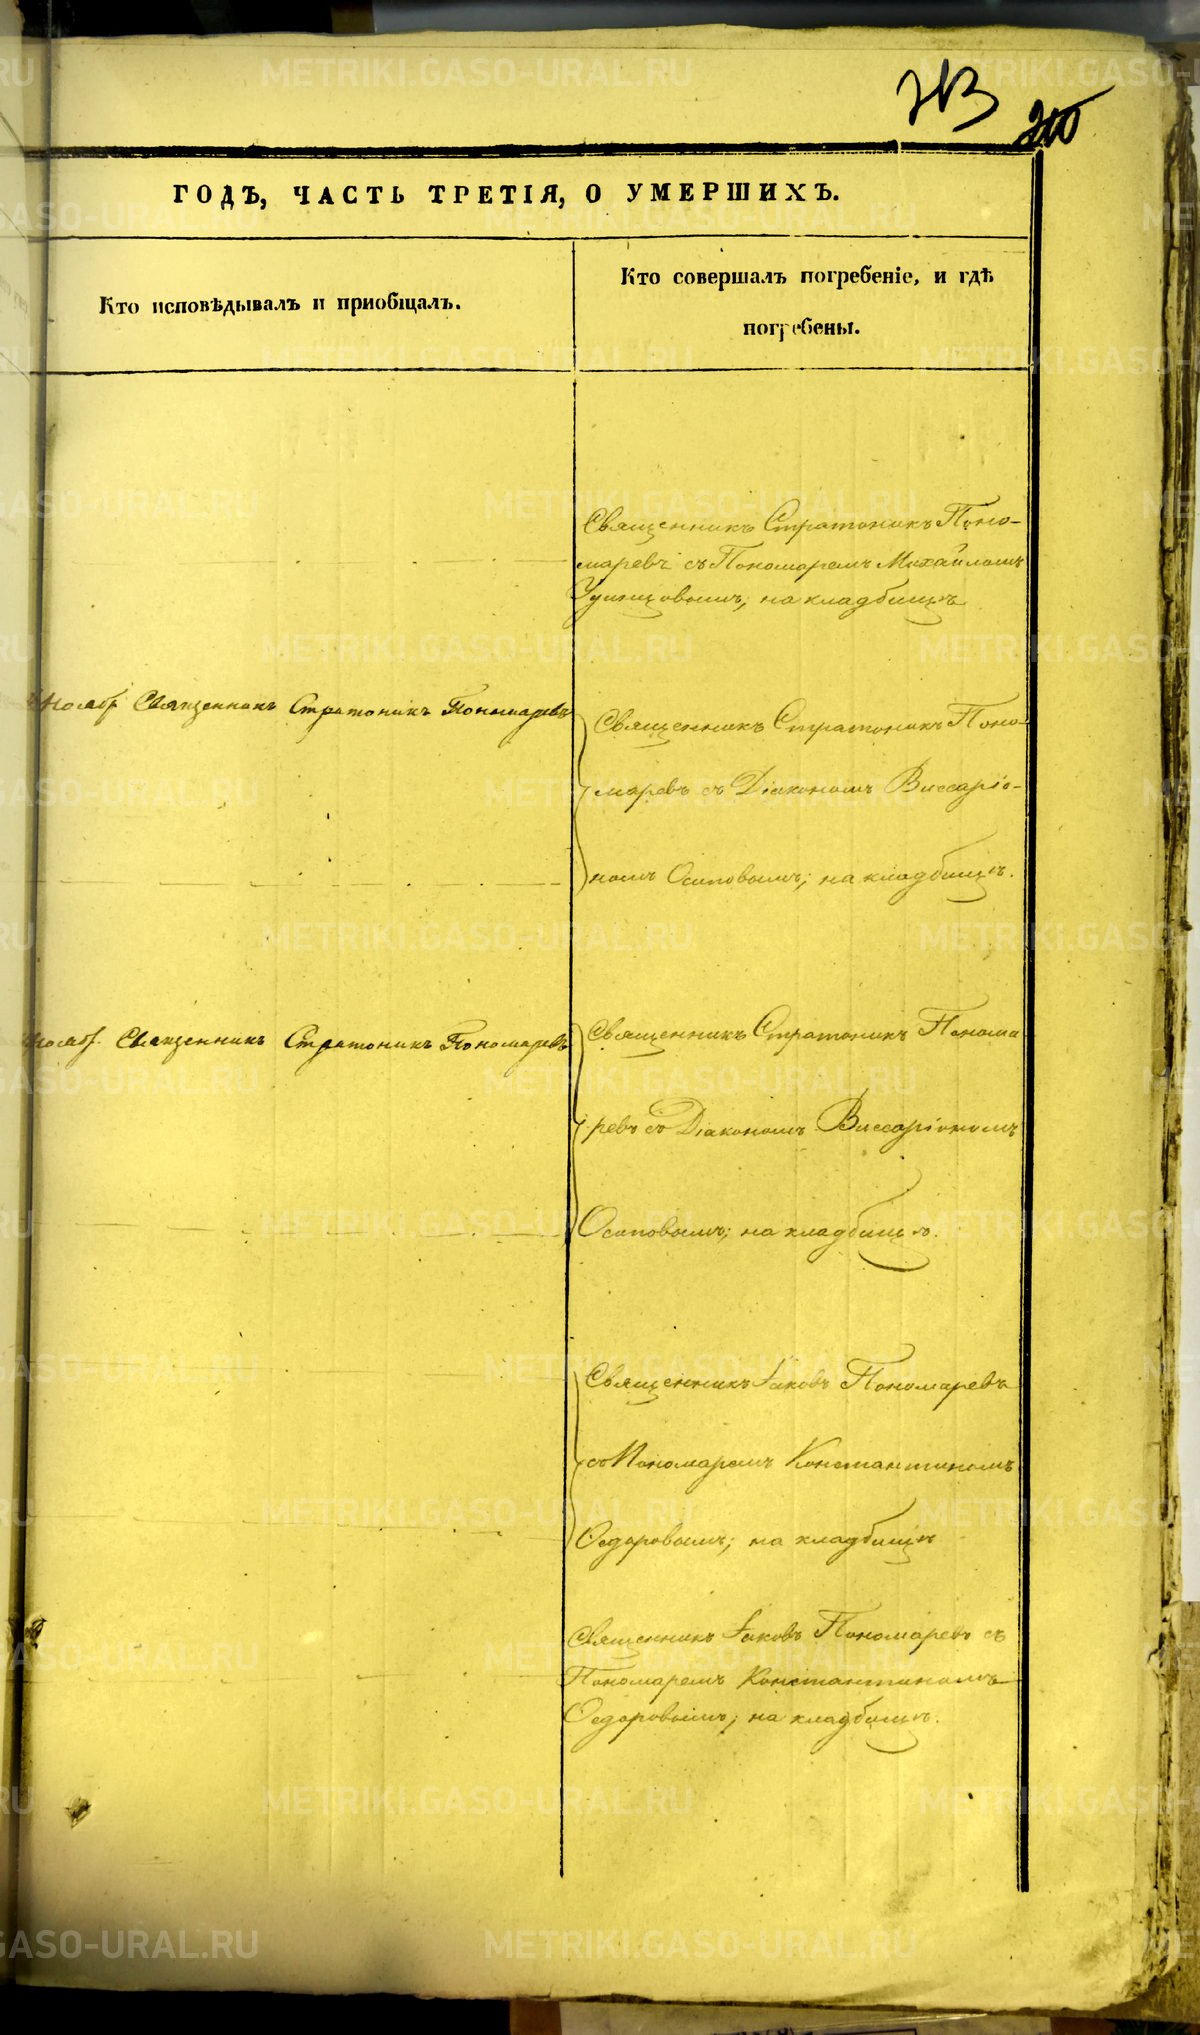 210
ГОДЪ, ЧАСТЬ ТРЕТІЯ, О УМЕРШИХЪ.
Кто исповѣдывалъ и пріобщалъ.
Кто совершалъ погребеніе, и гдѣ
погребены.
Священникъ Стратоникъ Поно-
маревъ съ Пономаремъ Михайломъ
на кладбищѣ
Нояб. Священникъ Стратоникъ Пономаревъ
Священникъ Стратоникъ Поно-
маревъ съ Діакономъ Виссаріо-
номъ Осиповымъ; на кладбищѣ.
Нояб. Священникъ Стратоникъ Пономаревъ
Священникъ Стратоникъ Понома
ревъ съ Діакономъ Виссаріономъ
Осиповымъ; на кладбищѣ.
Священникъ Іаковъ Пономаревъ
съ Пономаремъ Константиномъ
Ѳедоровымъ; на кладбищѣ
Священникъ Іаковъ Пономаревъ съ
Пономаремъ Константиномъ
Ѳедоровымъ; на кладбищѣ.
METRIKI.GASO-URAL.RU